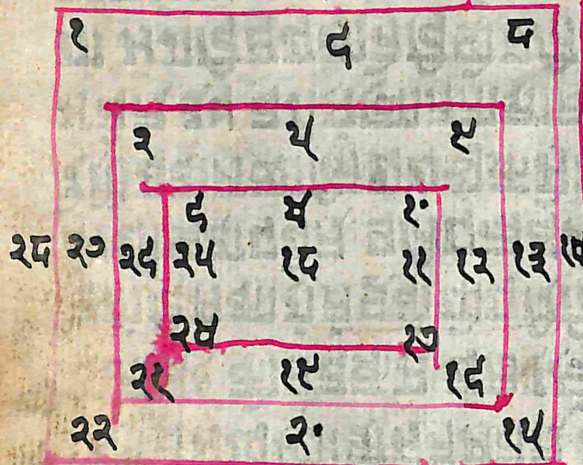 १ ६ ८
२ ५ ९
६ ४ १०
२८ २७ २६ २५ १८ ११ १२ १३
२४ १७
१९ १६
२२ २० १५